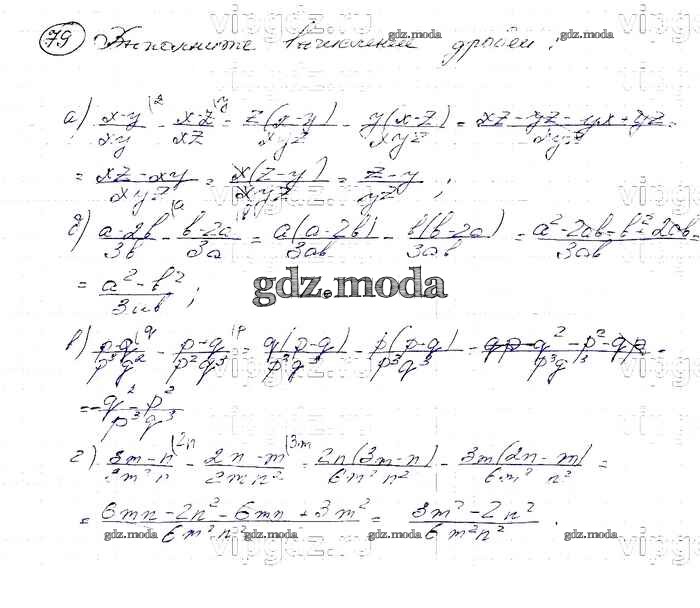 79 Выполните вычитание дробей:
а) (x-y)/(xy) |z - (x-z)/(xz) |y = z(x-y)/(xyz) - y(x-z)/(xyz) = (xz-yz-yx+yz)/(xyz) =
= (xz-xy)/(xyz) = x(z-y)/(xyz) = (z-y)/(yz) ;
б) (a-2b)/(3b) |a - (b-2a)/(3a) |b = a(a-2b)/(3ab) - b(b-2a)/(3ab) = (a²-2ab-b²+2ab)/(3ab) =
= (a²-b²)/(3ab) ;
gdz.moda
в) (p-q)/(p³q²) |q - (p-q)/(p²q³) |p = q(p-q)/(p³q³) - p(p-q)/(p³q³) = (qp-q²-p²-qp)/(p³q³) =
= (-q²-p²)/(p³q³)
г) (3m-n)/(3m²n) |2n - (2n-m)/(2mn²) |3m = 2n(3m-n)/(6m²n²) - 3m(2n-m)/(6m²n²) =
= (6mn-2n²-6mn+3m²)/(6m²n²) = (3m²-2n²)/(6m²n²) .
gdz.moda gdz.moda gdz.moda gdz.moda